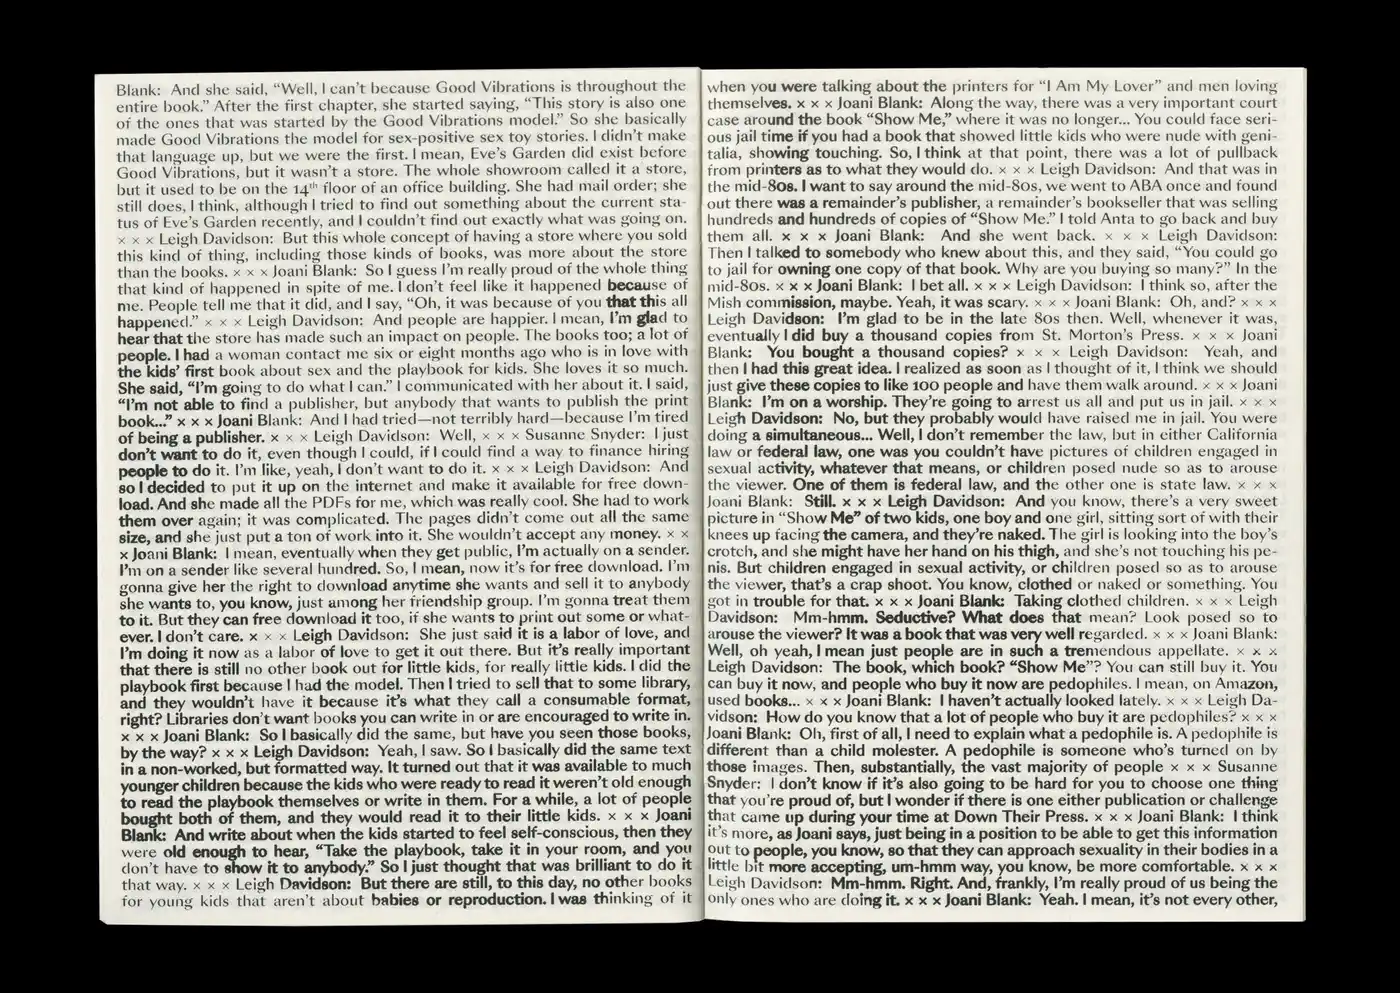 Blank: And she said, “Well, I can’t because Good Vibrations is throughout the
entire book.” After the first chapter, she started saying, “This story is also one
of the ones that was started by the Good Vibrations model.” So she basically
made Good Vibrations the model for sex-positive sex toy stories. I didn’t make
that language up, but we were the first. I mean, Eve’s Garden did exist before
Good Vibrations, but it wasn’t a store. The whole showroom called it a store,
but it used to be on the 14th floor of an office building. She had mail order; she
still does, I think, although I tried to find out something about the current sta-
tus of Eve’s Garden recently, and I couldn’t find out exactly what was going on.
× × × Leigh Davidson: But this whole concept of having a store where you sold
this kind of thing, including those kinds of books, was more about the store
than the books. × × × Joani Blank: So I guess I’m really proud of the whole thing
that kind of happened in spite of me. I don’t feel like it happened because of
me. People tell me that it did, and I say, “Oh, it was because of you that this all
happened.” × × × Leigh Davidson: And people are happier. I mean, I’m glad to
hear that the store has made such an impact on people. The books too; a lot of
people. I had a woman contact me six or eight months ago who is in love with
the kids’ first book about sex and the playbook for kids. She loves it so much.
She said, “I’m going to do what I can.” I communicated with her about it. I said,
“I’m not able to find a publisher, but anybody that wants to publish the print
book...” × × × Joani Blank: And I had tried—not terribly hard—because I’m tired
of being a publisher. × × × Leigh Davidson: Well, × × × Susanne Snyder: I just
don’t want to do it, even though I could, if I could find a way to finance hiring
people to do it. I’m like, yeah, I don’t want to do it. × × × Leigh Davidson: And
so I decided to put it up on the internet and make it available for free down-
load. And she made all the PDFs for me, which was really cool. She had to work
them over again; it was complicated. The pages didn’t come out all the same
size, and she just put a ton of work into it. She wouldn’t accept any money. × ×
× Joani Blank: I mean, eventually when they get public, I’m actually on a sender.
I’m on a sender like several hundred. So, I mean, now it’s for free download. I’m
gonna give her the right to download anytime she wants and sell it to anybody
she wants to, you know, just among her friendship group. I’m gonna treat them
to it. But they can free download it too, if she wants to print out some or what-
ever. I don’t care. × × × Leigh Davidson: She just said it is a labor of love, and
I’m doing it now as a labor of love to get it out there. But it’s really important
that there is still no other book out for little kids, for really little kids. I did the
playbook first because I had the model. Then I tried to sell that to some library,
and they wouldn’t have it because it’s what they call a consumable format,
right? Libraries don’t want books you can write in or are encouraged to write in.
× × × Joani Blank: So I basically did the same, but have you seen those books,
by the way? × × × Leigh Davidson: Yeah, I saw. So I basically did the same text
in a non-worked, but formatted way. It turned out that it was available to much
younger children because the kids who were ready to read it weren’t old enough
to read the playbook themselves or write in them. For a while, a lot of people
bought both of them, and they would read it to their little kids. × × × Joani
Blank: And write about when the kids started to feel self-conscious, then they
were old enough to hear, “Take the playbook, take it in your room, and you
don’t have to show it to anybody.” So I just thought that was brilliant to do it
that way. × × × Leigh Davidson: But there are still, to this day, no other books
for young kids that aren’t about babies or reproduction. I was thinking of it
when you were talking about the printers for “I Am My Lover” and men loving
themselves. × × × Joani Blank: Along the way, there was a very important court
case around the book “Show Me,” where it was no longer... You could face seri-
ous jail time if you had a book that showed little kids who were nude with geni-
talia, showing touching. So, I think at that point, there was a lot of pullback
from printers as to what they would do. × × × Leigh Davidson: And that was in
the mid-80s. I want to say around the mid-80s, we went to ABA once and found
out there was a remainder’s publisher, a remainder’s bookseller that was selling
hundreds and hundreds of copies of “Show Me.” I told Anta to go back and buy
them all. × × × Joani Blank: And she went back. × × × Leigh Davidson:
Then I talked to somebody who knew about this, and they said, “You could go
to jail for owning one copy of that book. Why are you buying so many?” In the
mid-80s. × × × Joani Blank: I bet all. × × × Leigh Davidson: I think so, after the
Mish commission, maybe. Yeah, it was scary. × × × Joani Blank: Oh, and? × × ×
Leigh Davidson: I’m glad to be in the late 80s then. Well, whenever it was,
eventually I did buy a thousand copies from St. Morton’s Press. × × × Joani
Blank: You bought a thousand copies? × × × Leigh Davidson: Yeah, and
then I had this great idea. I realized as soon as I thought of it, I think we should
just give these copies to like 100 people and have them walk around. × × × Joani
Blank: I’m on a worship. They’re going to arrest us all and put us in jail. × × ×
Leigh Davidson: No, but they probably would have raised me in jail. You were
doing a simultaneous... Well, I don’t remember the law, but in either California
law or federal law, one was you couldn’t have pictures of children engaged in
sexual activity, whatever that means, or children posed nude so as to arouse
the viewer. One of them is federal law, and the other one is state law. × × ×
Joani Blank: Still. × × × Leigh Davidson: And you know, there’s a very sweet
picture in “Show Me” of two kids, one boy and one girl, sitting sort of with their
knees up facing the camera, and they’re naked. The girl is looking into the boy’s
crotch, and she might have her hand on his thigh, and she’s not touching his pe-
nis. But children engaged in sexual activity, or children posed so as to arouse
the viewer, that’s a crap shoot. You know, clothed or naked or something. You
got in trouble for that. × × × Joani Blank: Taking clothed children. × × × Leigh
Davidson: Mm-hmm. Seductive? What does that mean? Look posed so to
arouse the viewer? It was a book that was very well regarded. × × × Joani Blank:
Well, oh yeah, I mean just people are in such a tremendous appellate. × × ×
Leigh Davidson: The book, which book? “Show Me”? You can still buy it. You
can buy it now, and people who buy it now are pedophiles. I mean, on Amazon,
used books... × × × Joani Blank: I haven’t actually looked lately. × × × Leigh Da-
vidson: How do you know that a lot of people who buy it are pedophiles? × × ×
Joani Blank: Oh, first of all, I need to explain what a pedophile is. A pedophile is
different than a child molester. A pedophile is someone who’s turned on by
those images. Then, substantially, the vast majority of people × × × Susanne
Snyder: I don’t know if it’s also going to be hard for you to choose one thing
that you’re proud of, but I wonder if there is one either publication or challenge
that came up during your time at Down Their Press. × × × Joani Blank: I think
it’s more, as Joani says, just being in a position to be able to get this information
out to people, you know, so that they can approach sexuality in their bodies in a
little bit more accepting, um-hmm way, you know, be more comfortable. × × ×
Leigh Davidson: Mm-hmm. Right. And, frankly, I’m really proud of us being the
only ones who are doing it. × × × Joani Blank: Yeah. I mean, it’s not every other,